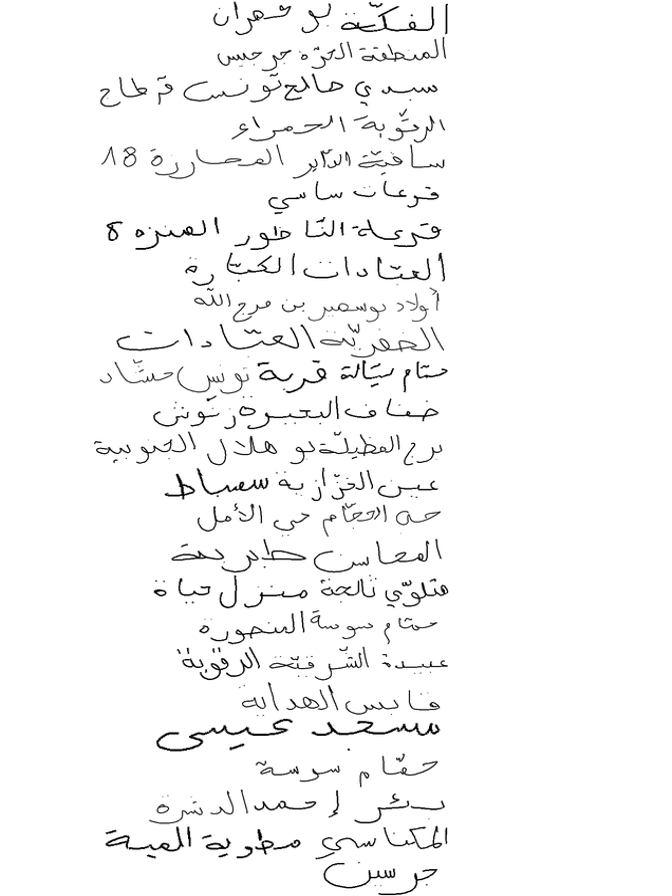 الفكّة بو شهران
المنطقة الحرّة جرجيس
سيدي صالح تونس قرطاج
الرتّوبة الحمراء
ساقية الدّاير المحارزة 18
قرعات ساسي
قرعة النّاظور المنزه 8
العتّادات الكبّارة
أولاد بوسمير بن فرج الله
الخفريّة العتّادات
حمّام سيّالة قربة تونس حشّاد
ضفاف البحيرة زنّوش
برج الفطيلة بو هلال الجنوبية
عين الخرّازية سمباط
حي الحجّام حي الأمل
المعاسن طابرية
متلوّي ثالجة منزل حياة
حمّام سوسة المنصورة
عبيدة الشّرقيّة الرقّوبة
قابس الهداية
مسعد عيسى
حمّام سوسة
بئر إحمد الدشرة
المكناسي مطوية الميسة
جرسين